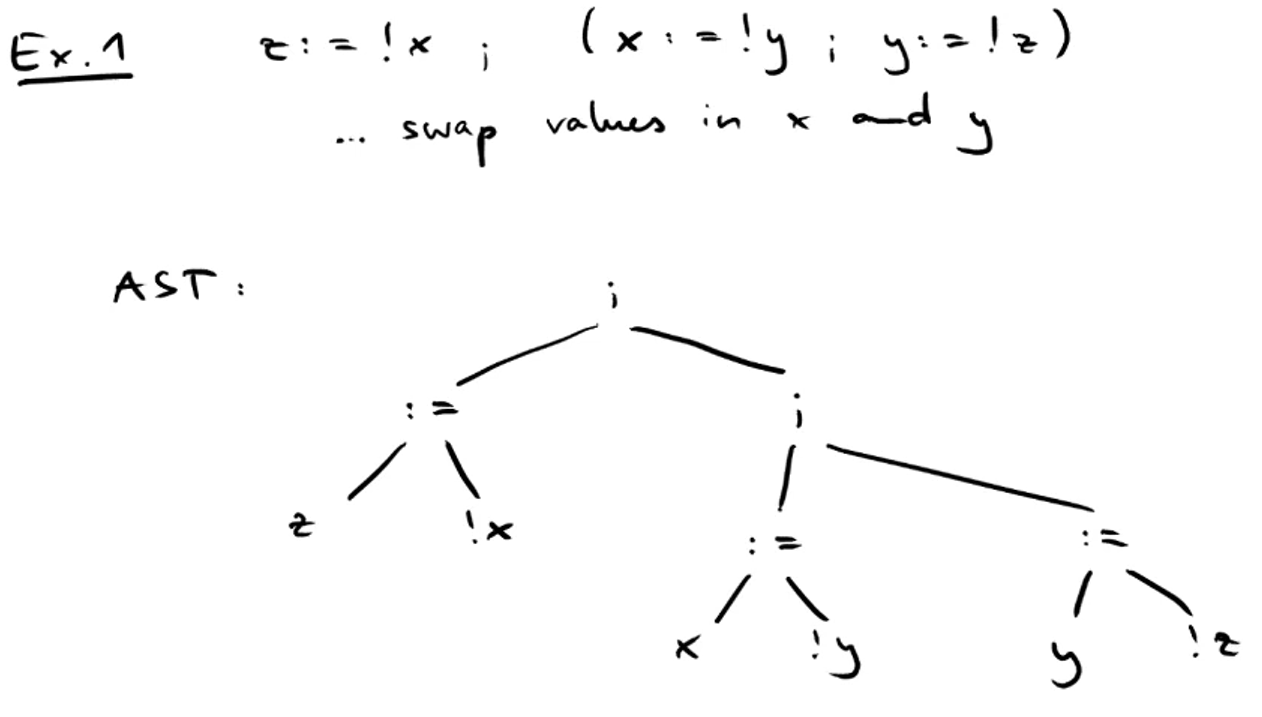 Ex. 1 z := !x ; (x := !y ; y := !z)
... swap values in x and y
AST :
;
:= ;
z !x := :=
x !y y !z